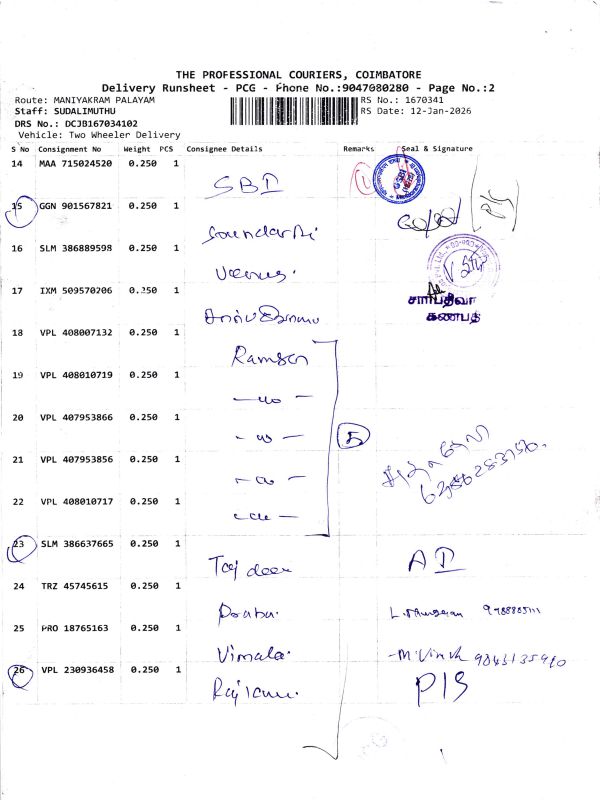 THE PROFESSIONAL COURIERS, COIMBATORE
Delivery Runsheet - PCG - Phone No.:9047080280 - Page No.:2
Route: MANIYAKRAM PALAYAM
RS No.: 1670341
Staff: SUDALIMUTHU
RS Date: 12-Jan-2026
DRS No.: DCJB167034102
Vehicle: Two Wheeler Delivery
S No Consignment No Weight PCS Consignee Details Remarks Seal & Signature
14 MAA 715024520 0.250 1
SBI
15 GGN 901567821 0.250 1
16 SLM 386889598 0.250 1
Venus.
17 IXM 509570206 0.250 1
சாரபதீவா
கணபதி
18 VPL 408007132 0.250 1
Ramson
19 VPL 408010719 0.250 1
20 VPL 407953866 0.250 1
5
21 VPL 407953856 0.250 1
22 VPL 408010717 0.250 1
23 SLM 386637665 0.250 1
Taj deen
24 TRZ 45745615 0.250 1
Prabu.
25 PRO 18765163 0.250 1
Vimala. M. Vinoth 9843135910
26 VPL 230936458 0.250 1